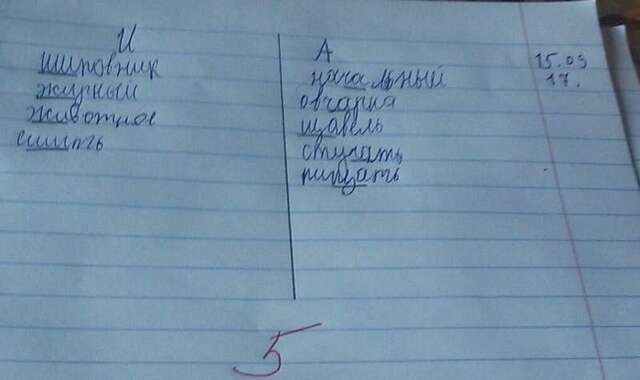 И
шиповник
жирный
животное
сшить
А
начальный
овчарка
щавель
стучать
пищать
15.03
17.
5